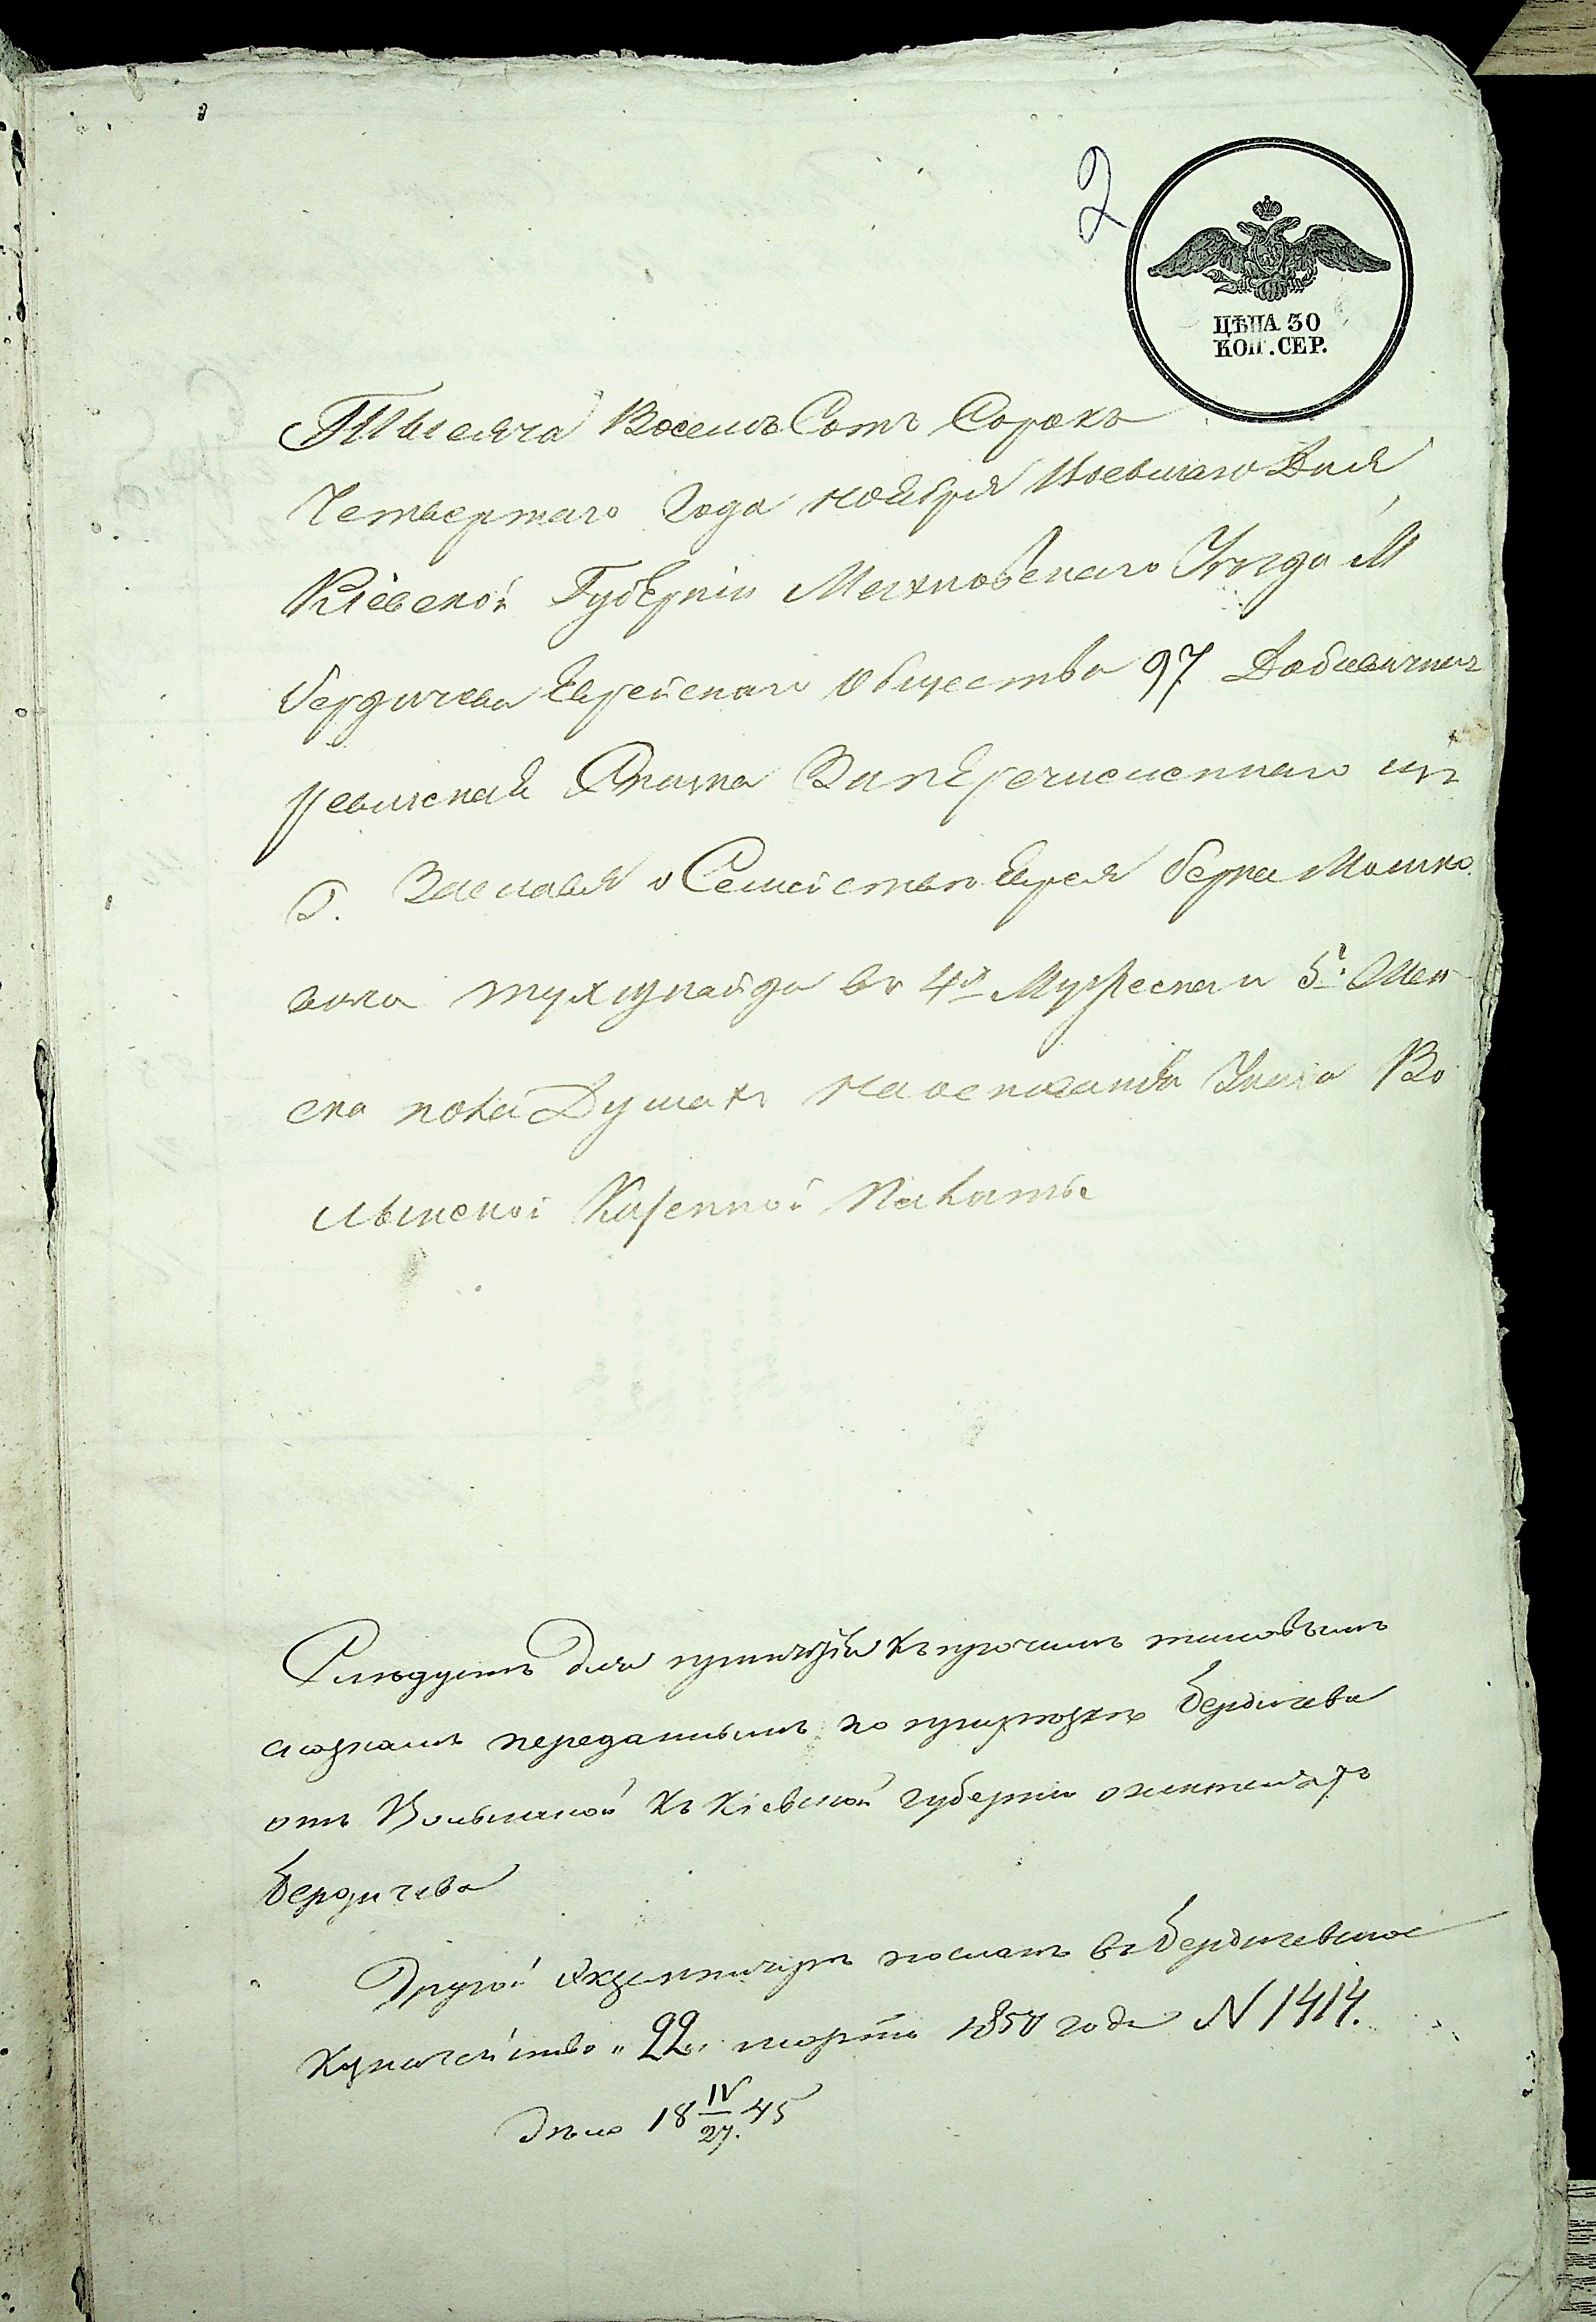 2
ЦѢНА 30
КОП. СЕР.
Тысяча Восемь Сотъ Сорокъ
Четвертаго Года Ноября Дня
Кіевской Губерніи Махновскаго Уѣзда М
Бердичева Еврейскаго Общества 97 Добавочная
ревизская Скаска Заперечисленнаго изъ
Г. Заславля о Семействѣ Еврея Берка Мошко
вича въ 4х Мужеска и 5 Жен
ска пола Душахъ На основаніи Указа Во
лынской Казенной Палаты
Слѣдуетъ для къ прочимъ таковымъ
скаскамъ переданнымъ по Бердичева
отъ Волынской къ Кіевской губерніи о жителяхъ
Бердичева
Другой экземпляръ посланъ въ Бердичевское
Казначейство "22" марта 1850 года N 1414.
Дѣло 18 IV/27. 45